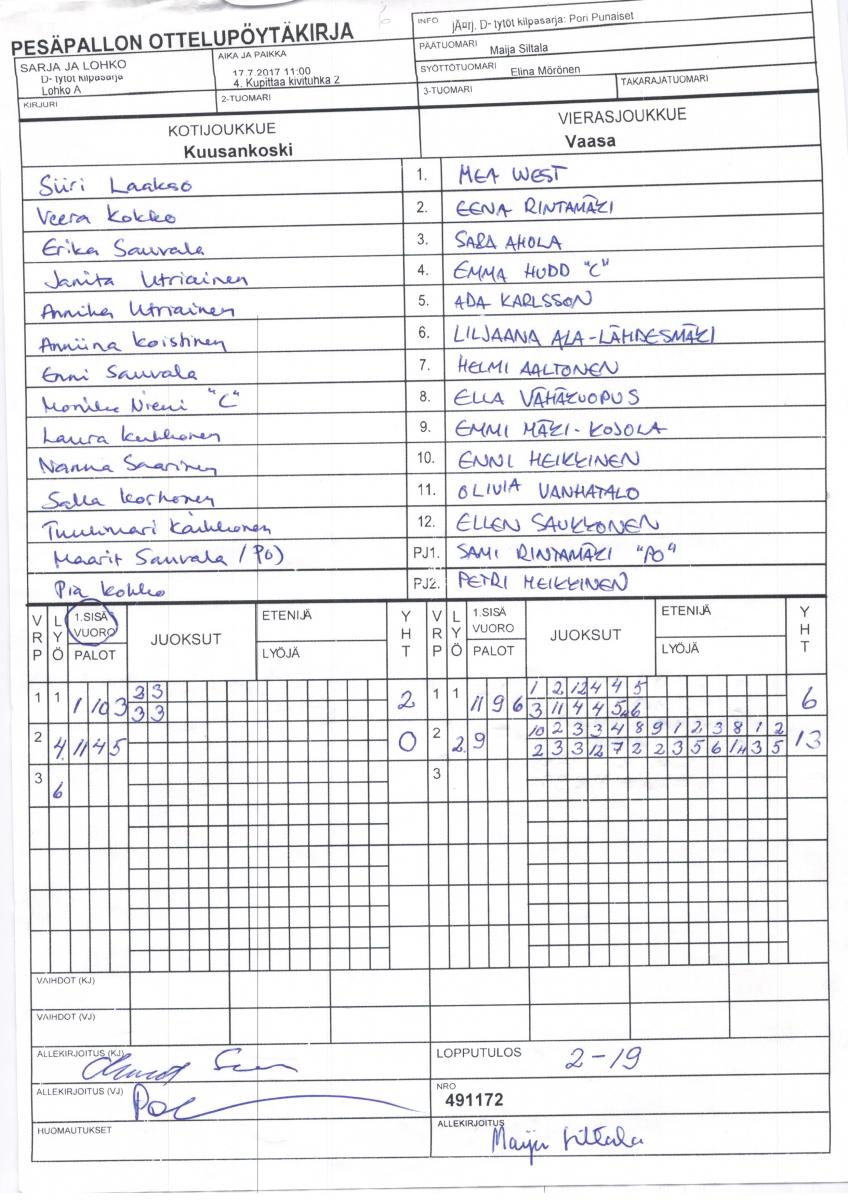 PESÄPALLON OTTELUPÖYTÄKIRJA
INFO jÄ¤rj. D- tytöt kilpasarja: Pori Punaiset
PÄÄTUOMARI Maija Siltala
SYÖTTÖTUOMARI Elina Mörönen
3-TUOMARI TAKARAJATUOMARI
SARJA JA LOHKO
D- tytöt kilpasarja
Lohko A
KIRJURI
AIKA JA PAIKKA
17.7.2017 11:00
4. Kupittaa kivituhka 2
2-TUOMARI
KOTIJOUKKUE VIERASJOUKKUE
Kuusankoski Vaasa
Siiri Laakso 1. MEA WEST
Veera Kokko 2. EENA RINTAMÄKI
Erika Sauvala 3. SARA AHOLA
Janita Utriainen 4. EMMA HUDD "C"
Annika Utriainen 5. ADA KARLSSON
Anniina Koistinen 6. LILJAANA ALA-LÄHDESMÄKI
Enni Sauvala 7. HELMI AALTONEN
Monika Niemi "C" 8. ELLA VÄHÄKUOPUS
Laura Kukkonen 9. EMMI MÄKI-KOJOLA
Nanna Saarinen 10. ENNI HEIKKINEN
Salla Korhonen 11. OLIVIA VANHATALO
Tuulimari Kaikkonen 12. ELLEN SAUKKONEN
Maarit Sauvala /PO) PJ1. SAMI RINTAMÄKI "PO"
Pia Kokko PJ2. PETRI HEIKKINEN
VRP LYÖ 1.SISÄ VUORO PALOT JUOKSUT ETENIJÄ LYÖJÄ YHT VRP LYÖ 1.SISÄ VUORO PALOT JUOKSUT ETENIJÄ LYÖJÄ YHT
1 1 1 10 3 3 3 2 1 1 11 9 6 1 2 12 4 4 5 6
3 3 3 11 4 4 5 6
2 4 11 4 5 0 2 2 9 10 2 3 3 4 8 9 1 2 3 8 1 2 13
2 3 3 12 7 2 2 3 5 6 1 3 5
3 6 3
VAIHDOT (KJ)
VAIHDOT (VJ)
ALLEKIRJOITUS (KJ) LOPPUTULOS 2-19
ALLEKIRJOITUS (VJ) NRO
491172
HUOMAUTUKSET ALLEKIRJOITUS Maija Siltala